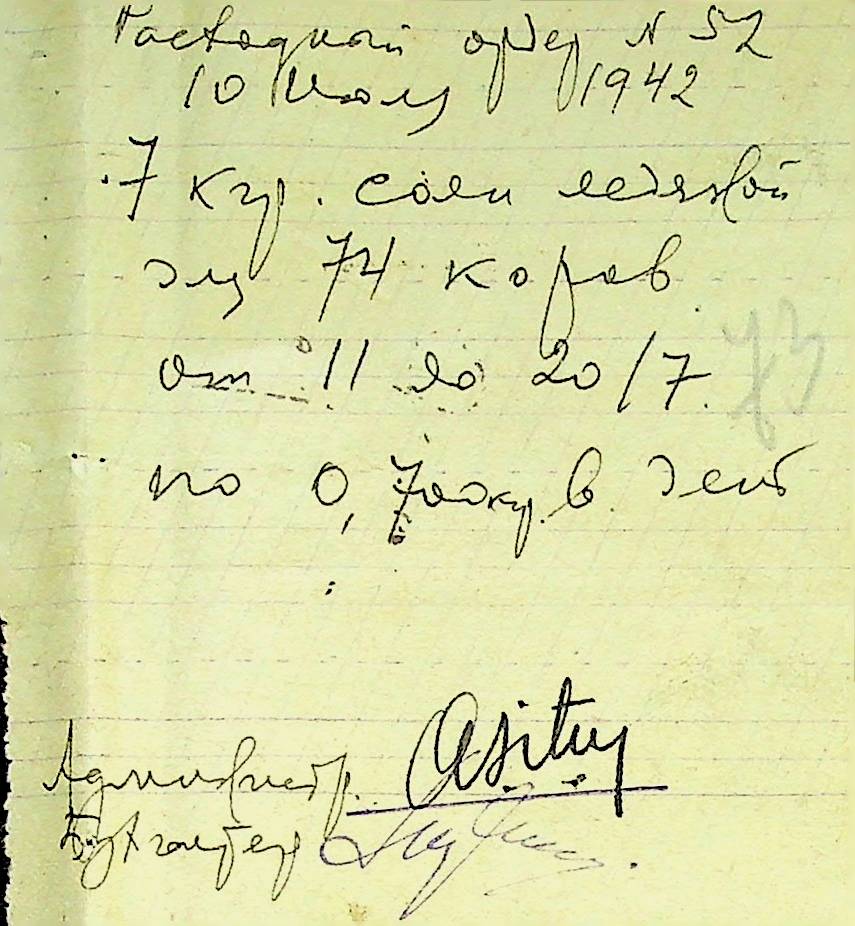 Расходный ордер N 52
10 Июля 1942
7 кгр. соли ледяной
для 74 коров
от 11 до 20/7.
73
по 0,700кгр. в день
Администр.
Бухгалтер